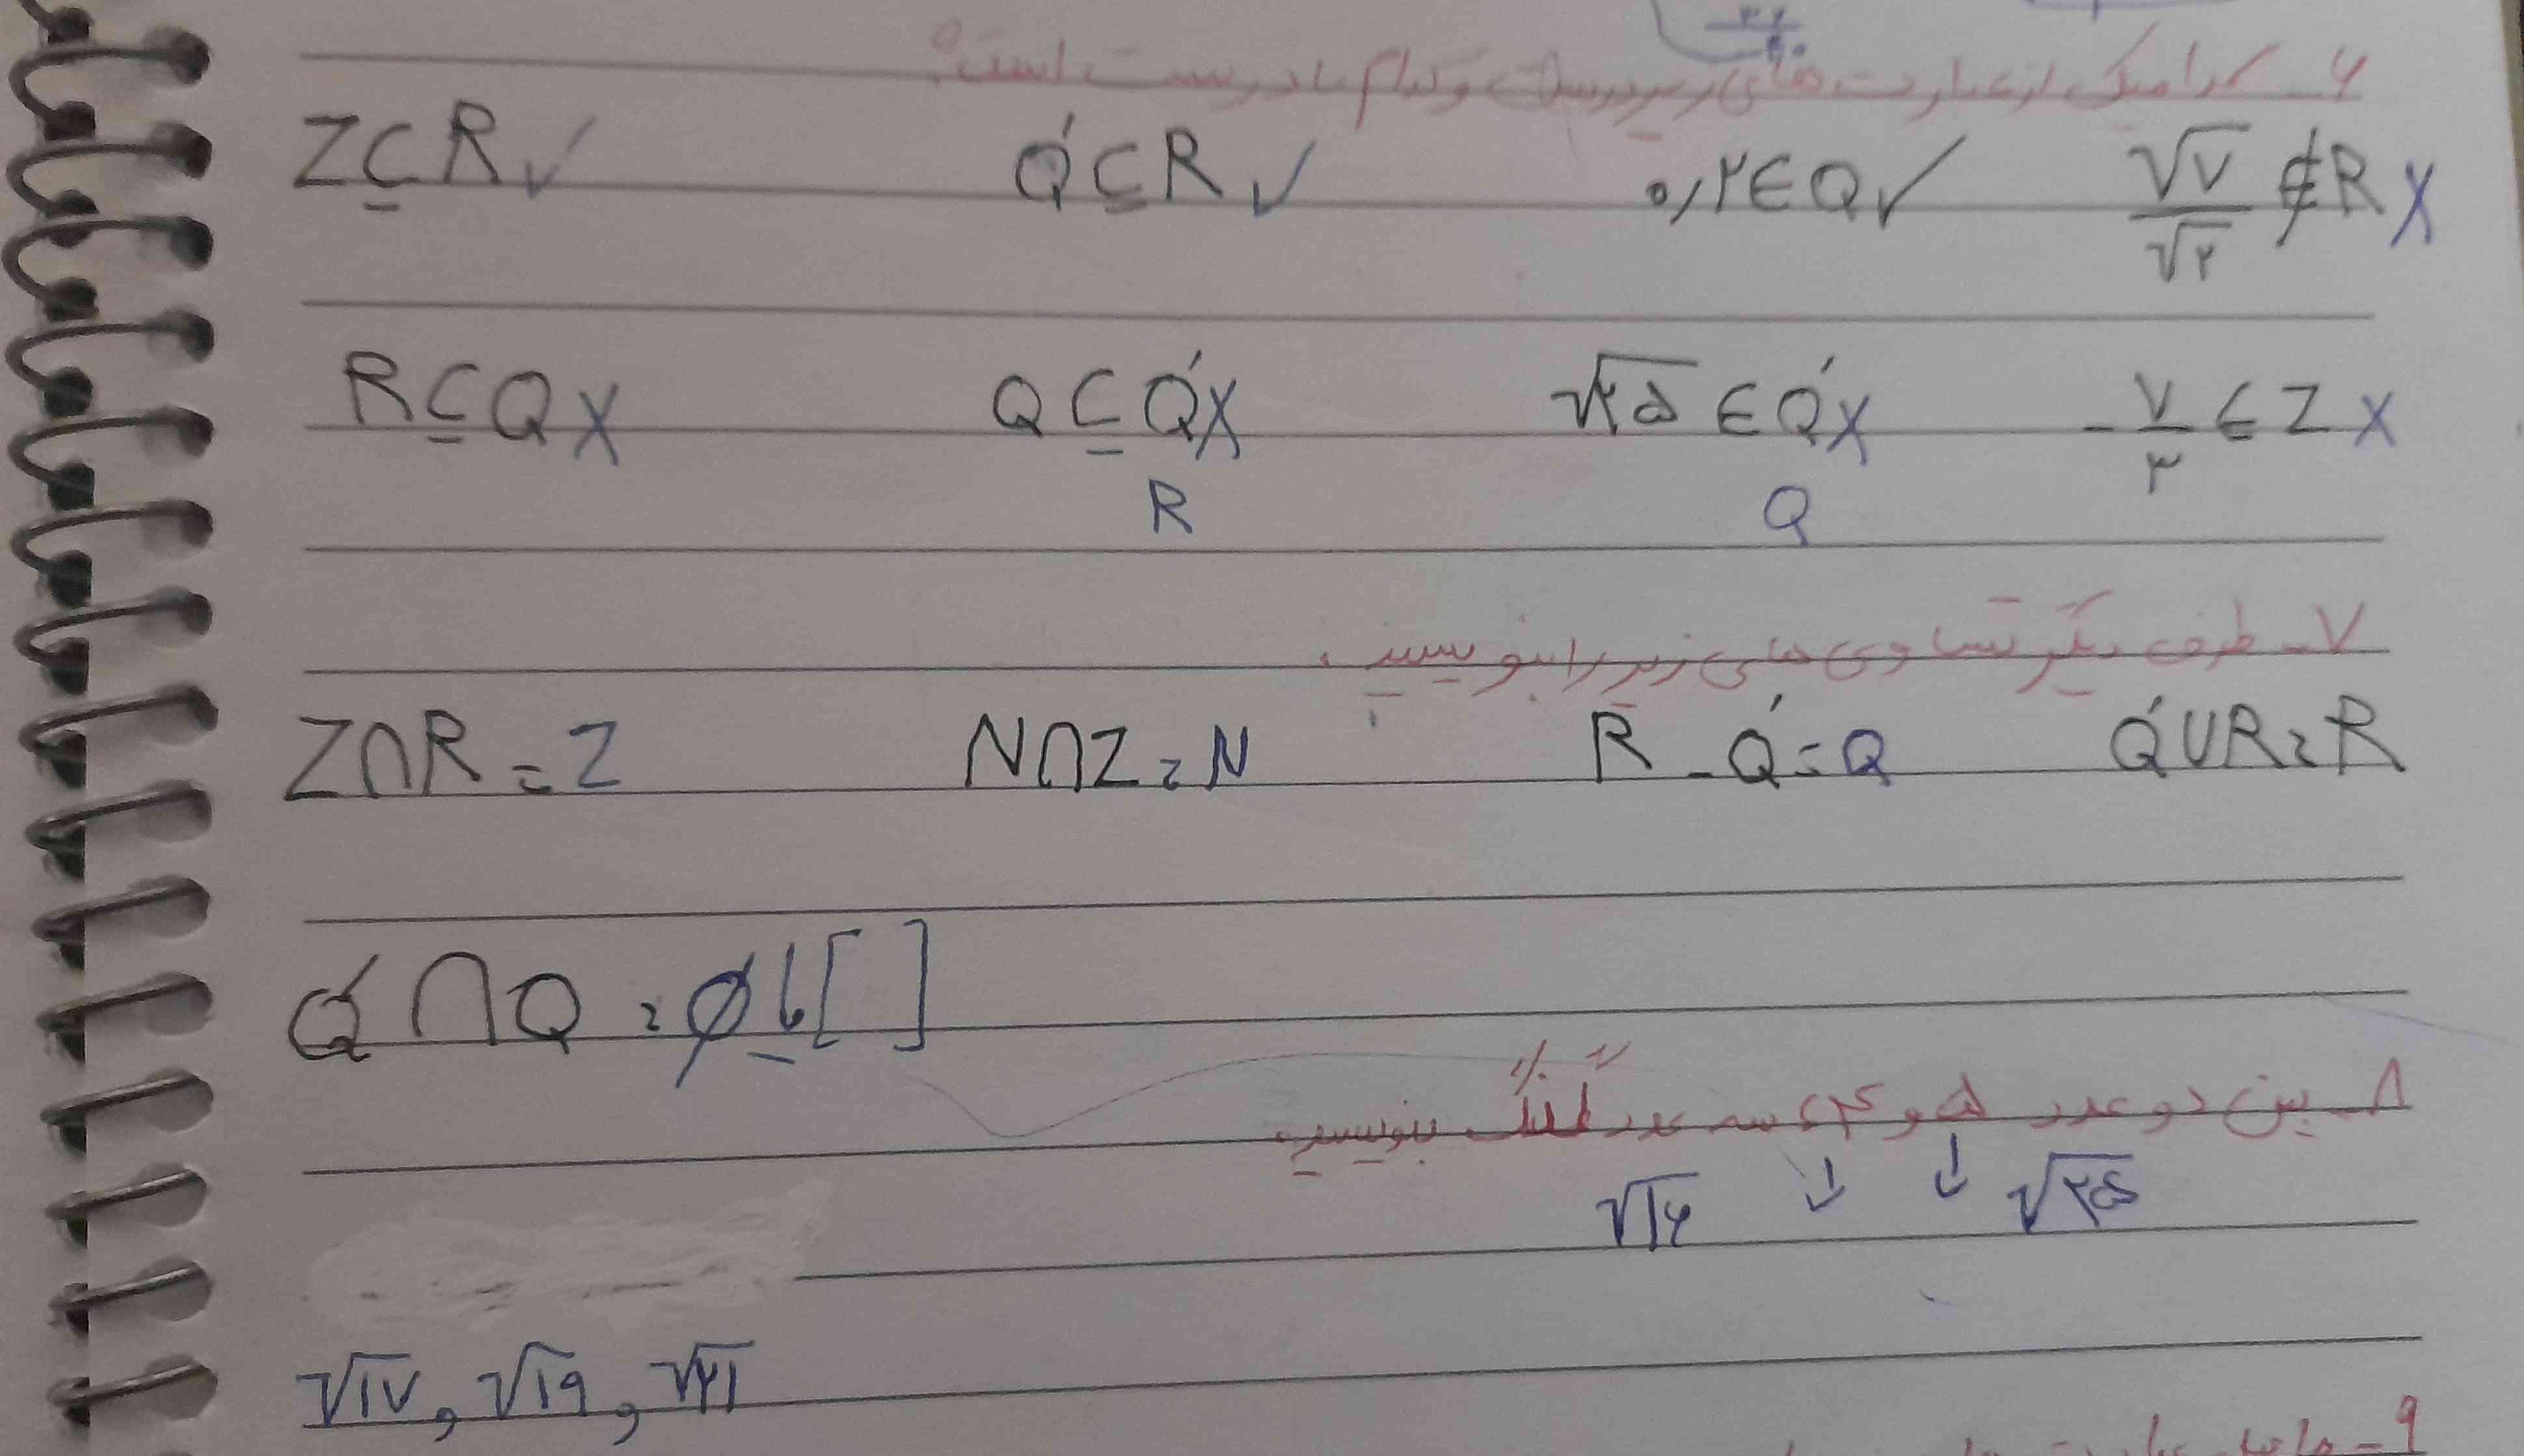 ۶ - کدامیک از عبارت های زیر درست و کدام نادرست است؟
Z ⊆ R ✓ Q′ ⊆ R ✓ ۰٫۲ ∈ Q ✓ √۷/√۲ ∉ R X
R ⊆ Q X Q ⊆ Q′ X √۲۵ ∈ Q′ X -۷/۳ ∈ Z X
R Q
۷ - طرف دیگر تساوی های زیر را بنویسید.
Z∩R = Z N∩Z = N R - Q′ = Q Q′∪R = R
Q′∩Q = ∅ یا [ ]
۸ - بین دو عدد ۵ و ۴، سه عدد گنگ بنویسید.
√۱۶ ↓ ↓ √۲۵
√۱۷ , √۱۹ , √۲۱